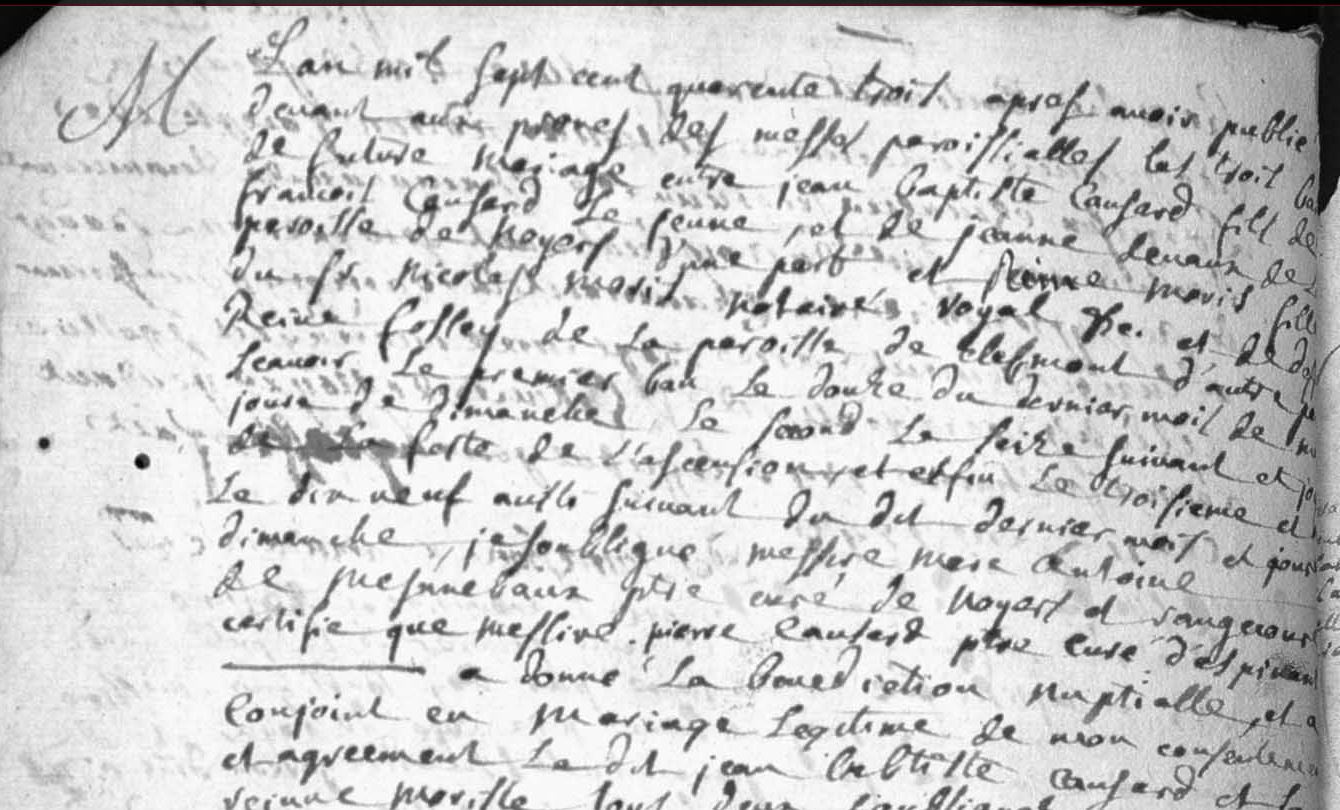 M
L'an mil sept cent quarente trois apres avoir publié
devant aux prones des messes paroissialles les trois ba
de future Mariage entre jean baptiste Causard fill de
francois Causard Le jeune et de jeanne devaux de
paroisse de Noyers d'une part et Reinne Moris fille
du sr. Nicolas Moris Notaire royal &c. et de d
Reine follley de La paroisse de Clefmont d'autre p
scavoir Le premier ban Le douze du dernier mois de m
jours de dimanche Le second Le seize suivant et jo
de La feste de l'ascension et enfin Le troisieme et
Le dix neuf aussi suivant du dit dernier mois et jour
dimanche, je soubligné messire Marc Antoine
de ptre curé de Noyers et rangecourt
certifie que Messire pierre Causard ptre curé d'espinant
a donné La benediction Nuptialle, et a
Conjoint en Mariage Legitime de mon consenteme
et agreement Le dit jean babtiste Causard et
reinne Morisse tous deux